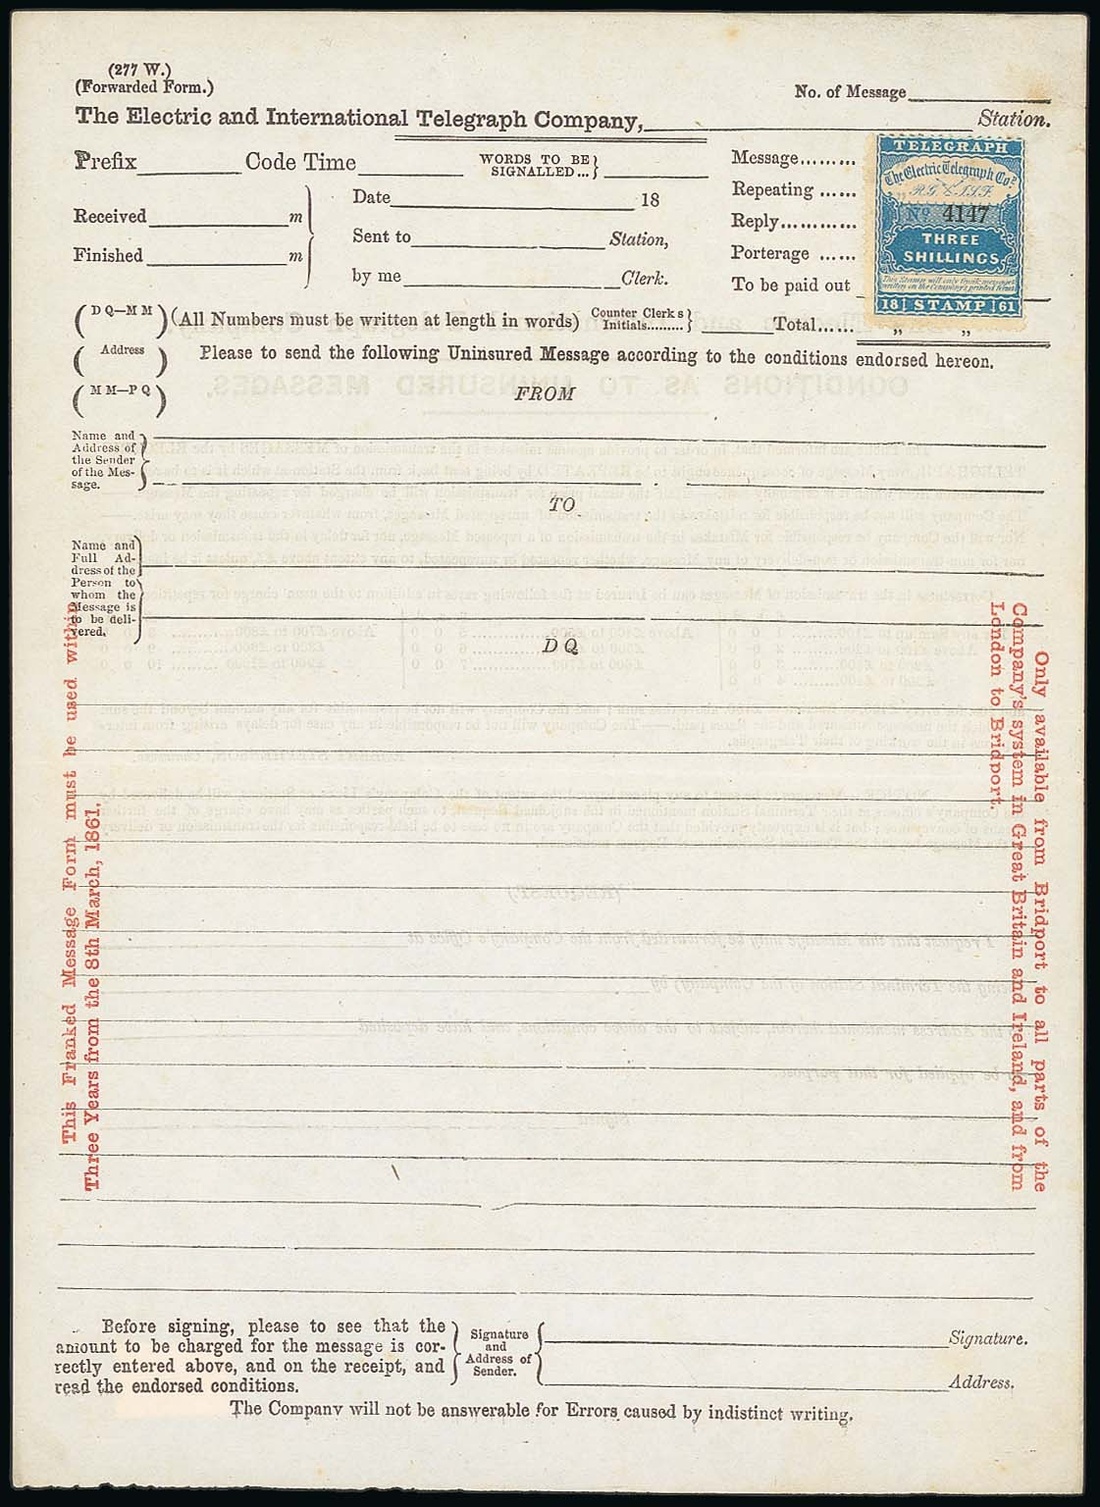 (277 W.)
(Forwarded Form.)
No. of Message
The Electric and International Telegraph Company, Station.
Prefix Code Time WORDS TO BE SIGNALLED...}
Received m
Finished m
Date 18
Sent to Station,
by me Clerk.
Message.........
Repeating ......
Reply...........
Porterage ......
To be paid out
TELEGRAPH
The Electric Telegraph Coy.
No. 4147
THREE
SHILLINGS
This Stamp will only frank messages
written on the Company's printed forms
18 STAMP 61
(DQ—MM) (All Numbers must be written at length in words) Counter Clerks Initials.........} Total...... „ „
(Address) Please to send the following Uninsured Message according to the conditions endorsed hereon.
(MM—PQ) FROM
Name and
Address of
the Sender
of the Mes-
sage.
TO
Name and
Full Ad-
dress of the
Person to
whom the
Message is
to be deli-
vered.
DQ
This Franked Message Form must be used within
Three Years from the 8th March, 1861.
Only available from Bridport to all parts of the
Company's system in Great Britain and Ireland, and from
London to Bridport.
Before signing, please to see that the
amount to be charged for the message is cor-
rectly entered above, and on the receipt, and
read the endorsed conditions.
Signature
and
Address of
Sender.
Signature.
Address.
The Company will not be answerable for Errors caused by indistinct writing.